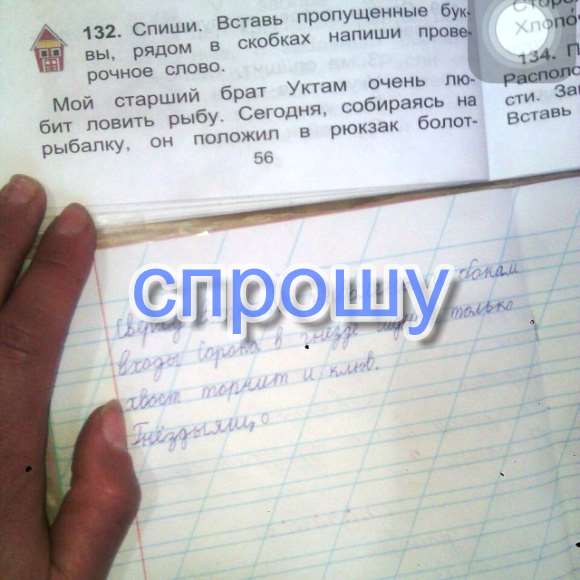 132. Спиши. Вставь пропущенные бук-
вы, рядом в скобках напиши прове-
рочное слово.
Мой старший брат Уктам очень лю-
бит ловить рыбу. Сегодня, собираясь на
рыбалку, он положил в рюкзак болот-
56
Хлопо
134. П
Располо
сти. За
Вставь
спрошу
бокам
входы Сорока в гнезде только
хвост торчит и клюв.